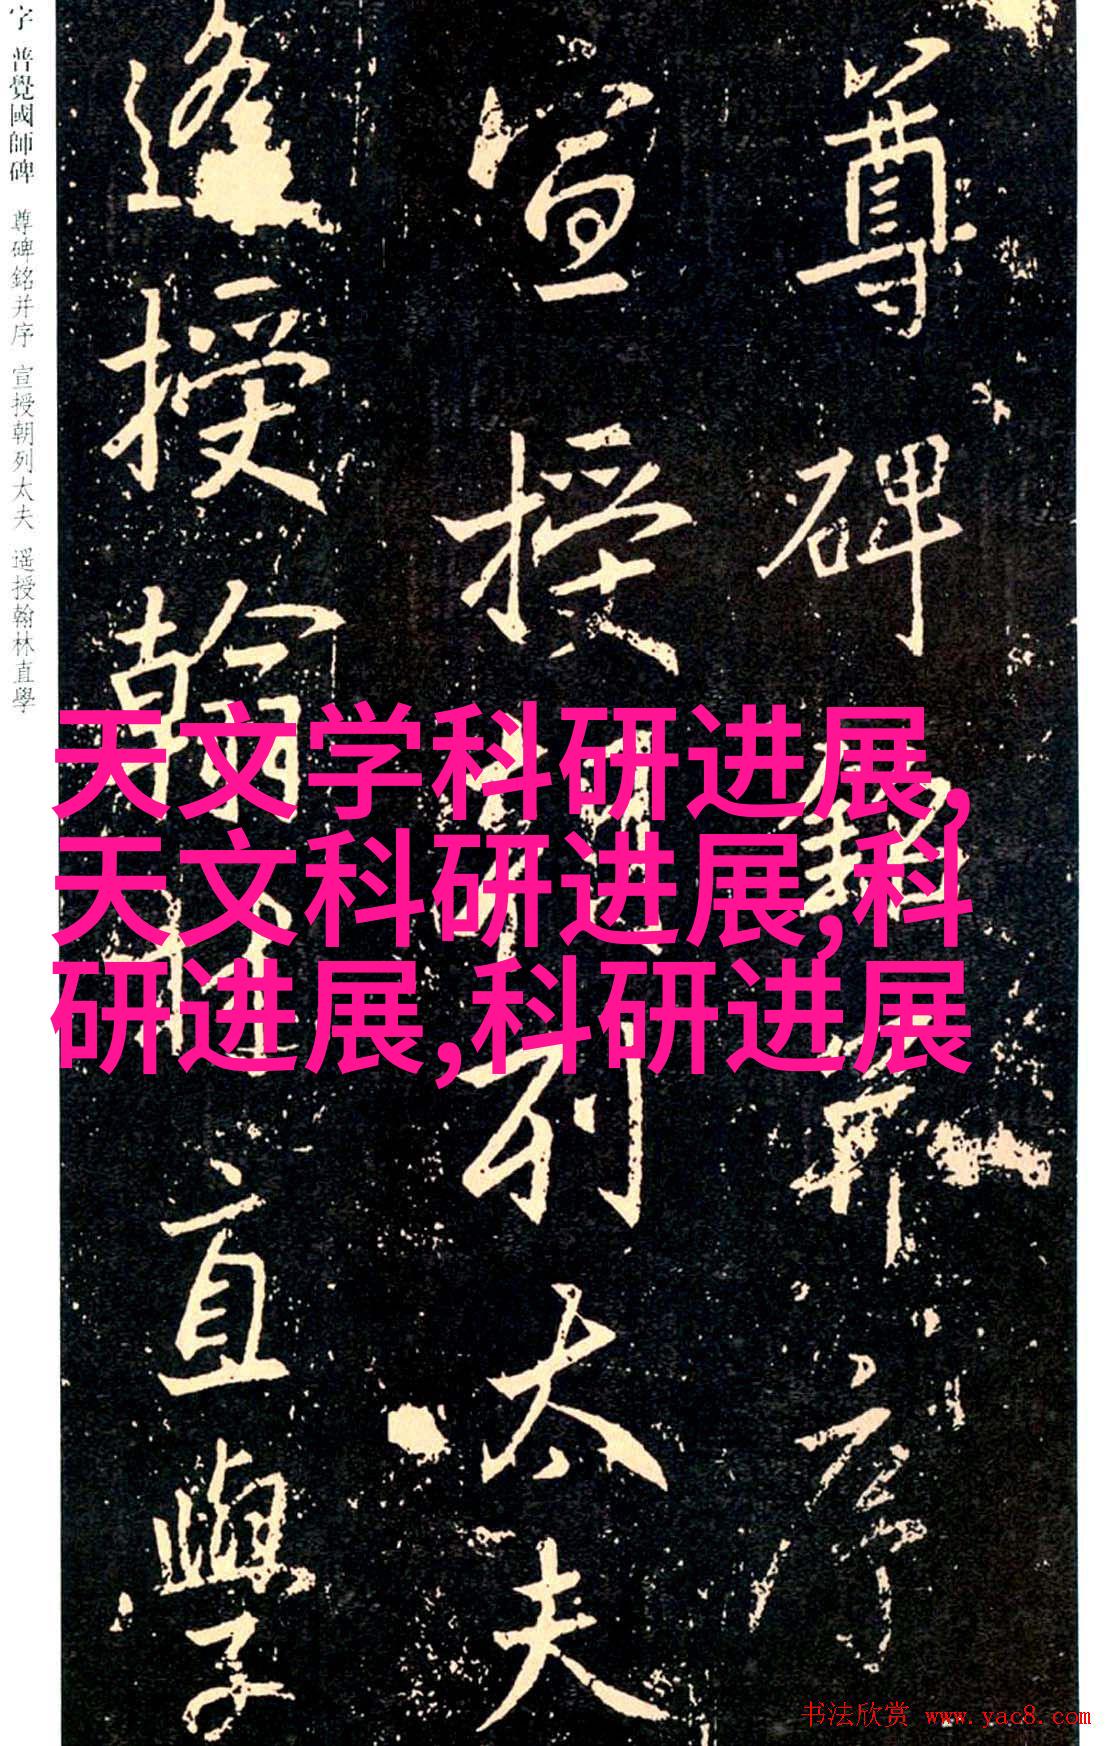 字 普覺國師碑 尊碑銘并序 宣授朝列太夫 遥授翰林直學
尊碑銘并序
宣授朝列太夫
遙授翰林直學
天文学科研进展,
天文科研进展,科
研进展,科研进展
书法欣赏 www.yac8.com